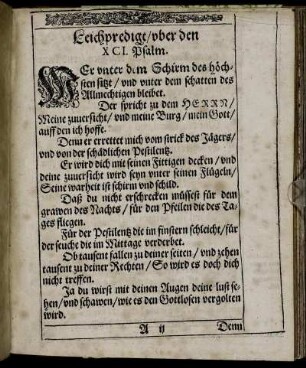 Leichpredigt/vber den
XCI. Psalm.
WEr vnter dem Schirm des höch-
sten sitzt/ vnd vnter dem schatten des
Allmechtigen bleibet.
Der spricht zu dem HERRN/
Meine zuuersicht/ vnd meine Burg/ mein Gott/
auff den ich hoffe.
Denn er errettet mich vom strick des Jägers/
vnd von der schädlichen Pestilentz.
Er wird dich mit seinen Fittigen decken/ vnd
deine zuuersicht wird seyn vnter seinen Flügeln/
Seine warheit ist schirm vnd schild.
Daß du nicht erschrecken müssest für dem
grawen des Nachts/ für den Pfeilen die des Ta-
ges fliegen.
Für der Pestilentz die im finstern schleicht/ für
der seuche die im Mittage verderbet.
Ob tausent fallen zu deiner seiten/ vnd zehen
tausent zu deiner Rechten/ So wird es doch dich
nicht treffen.
Ja du wirst mit deinen Augen deine lust se-
hen/ vnd schawen/ wie es den Gottlosen vergolten
wird.
A ij Denn